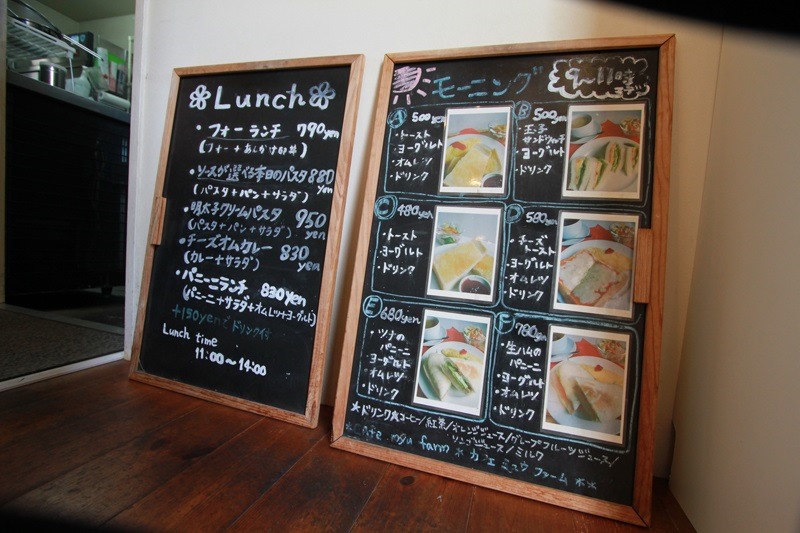 Lunch
・フォーランチ 790yen
(フォー+あんかけ御丼)
・ソースが選べる本日のパスタ 880yen
(パスタ+パン+サラダ)
・明太子クリームパスタ 950yen
(パスタ+パン+サラダ)
・チーズオムカレー 830yen
(カレー+サラダ)
・パニーニランチ 830yen
(パニーニ+サラダ+オムレツ+ヨーグルト)
+150yenでドリンク付
Lunch time
11:00〜14:00
モーニング 9〜11時まで
A 500yen
・トースト
・ヨーグルト
・オムレツ
・ドリンク
B 500yen
・玉子サンドウィッチ
・ヨーグルト
・ドリンク
C 480yen
・トースト
・ヨーグルト
・ドリンク
D 580yen
・チーズトースト
・ヨーグルト
・オムレツ
・ドリンク
E 680yen
・ツナのパニーニ
・ヨーグルト
・オムレツ
・ドリンク
F 780yen
・生ハムのパニーニ
・ヨーグルト
・オムレツ
・ドリンク
★ドリンク★コーヒー/紅茶/オレンジジュース/グレープフルーツジュース/
リンゴジュース/ミルク
*cafe myu farm*カフェ ミュウ ファーム